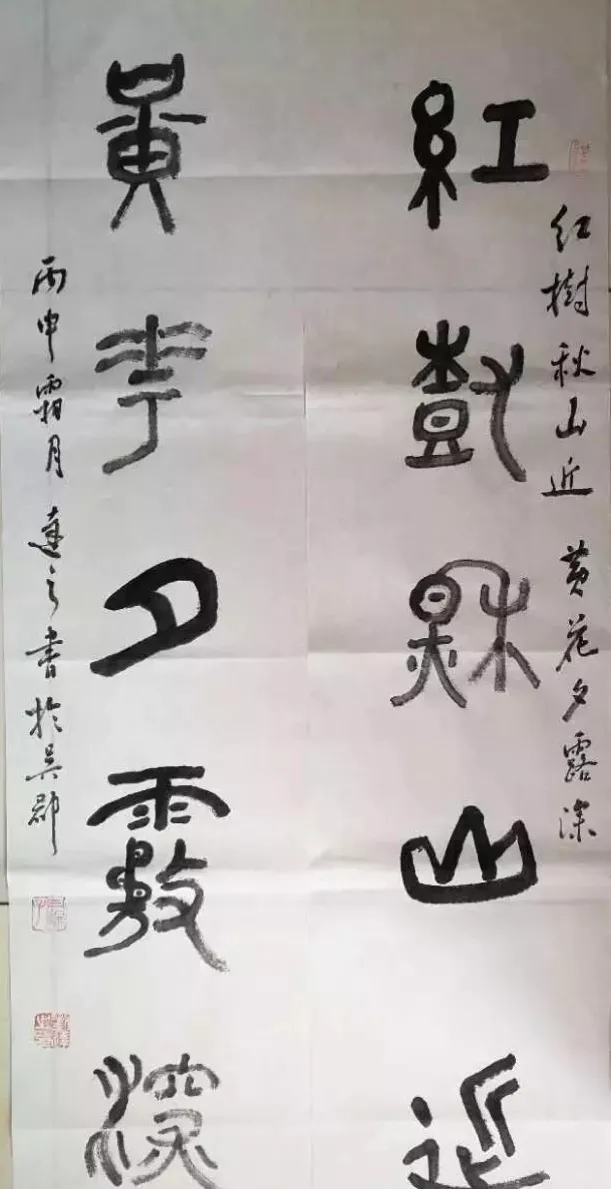 紅樹秋山近
红樹秋山近 黄花夕露深
黃華夕露深
丙申霜月達之書於吴郡